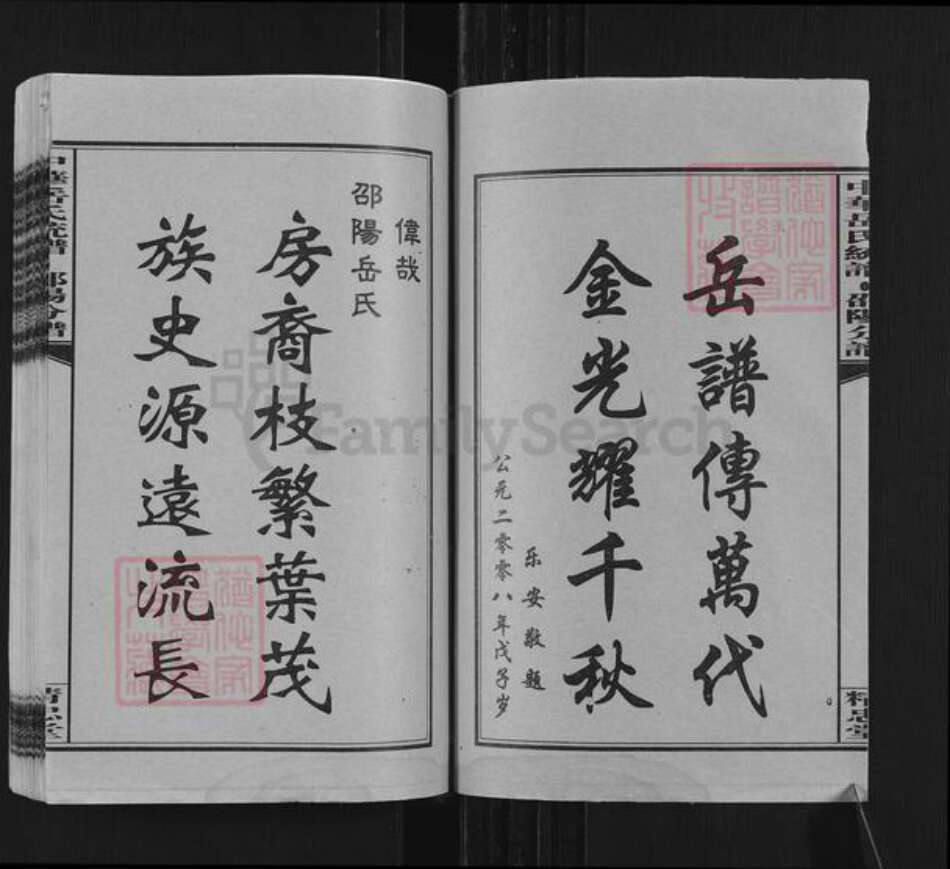 中華岳氏統譜·邵陽分譜
精忠堂
岳譜傳萬代
金光耀千秋
乐安敬题
公元二零零八年戊子岁
偉哉
邵陽岳氏
房裔枝繁葉茂
族史源遠流長
FamilySearch